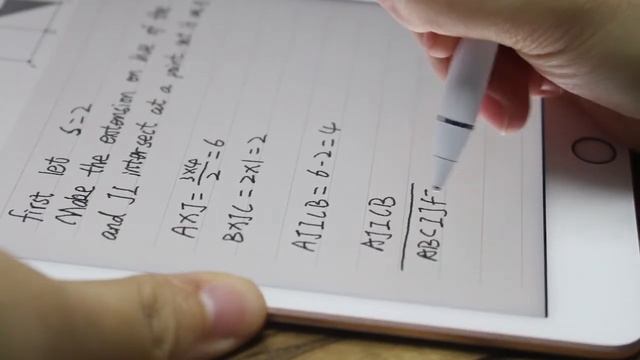 first let S=2
Make the extension on line of the
and JI intersect at a point
AXJ = 3x4/2 = 6
BXIC = 2x1 = 2
AJICB = 6-2=4
AJICB
ABCIJ